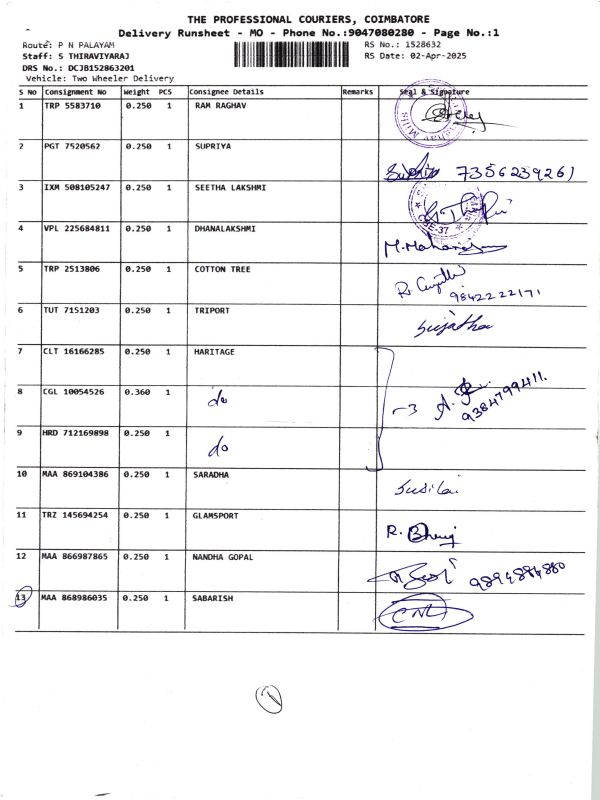 THE PROFESSIONAL COURIERS, COIMBATORE
Delivery Runsheet - MO - Phone No.:9047080280 - Page No.:1
Route: P N PALAYAM RS No.: 1528632
Staff: S THIRAVIYARAJ RS Date: 02-Apr-2025
DRS No.: DCJB152863201
Vehicle: Two Wheeler Delivery
S No Consignment No Weight PCS Consignee Details Remarks Seal & Signature
1 TRP 5583710 0.250 1 RAM RAGHAV
2 PGT 7520562 0.250 1 SUPRIYA 7356239261
3 IXM 508105247 0.250 1 SEETHA LAKSHMI
CBE-37
4 VPL 225684811 0.250 1 DHANALAKSHMI M.Maharajan
5 TRP 2513806 0.250 1 COTTON TREE R.
9842222171
6 TUT 7151203 0.250 1 TRIPORT Sujatha
7 CLT 16166285 0.250 1 HARITAGE
8 CGL 10054526 0.360 1 do -3 A. 9384799411.
9 HRD 712169898 0.250 1 do
10 MAA 869104386 0.250 1 SARADHA Susila
11 TRZ 145694254 0.250 1 GLAMSPORT R.
12 MAA 866987865 0.250 1 NANDHA GOPAL 9894884880
13 MAA 868986035 0.250 1 SABARISH CNL
1